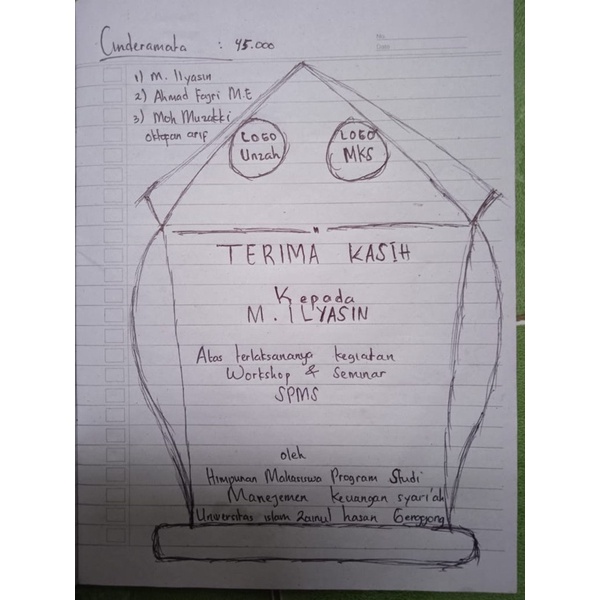 Cinderamata : 45.000
No
Date
1) M. Ilyasin
2) Ahmad Fajri M.E
3) Moh Muzakki
oktapan arif
LOGO
Unzah
LOGO
MKS
TERIMA KASIH
Kepada
M. ILYASIN
Atas terlaksananya kegiatan
Workshop & Seminar
SPMS
oleh
Himpunan Mahasiswa Program Studi
Manejemen Keuangan syari'ah
Universitas islam Zainul hasan Genggong